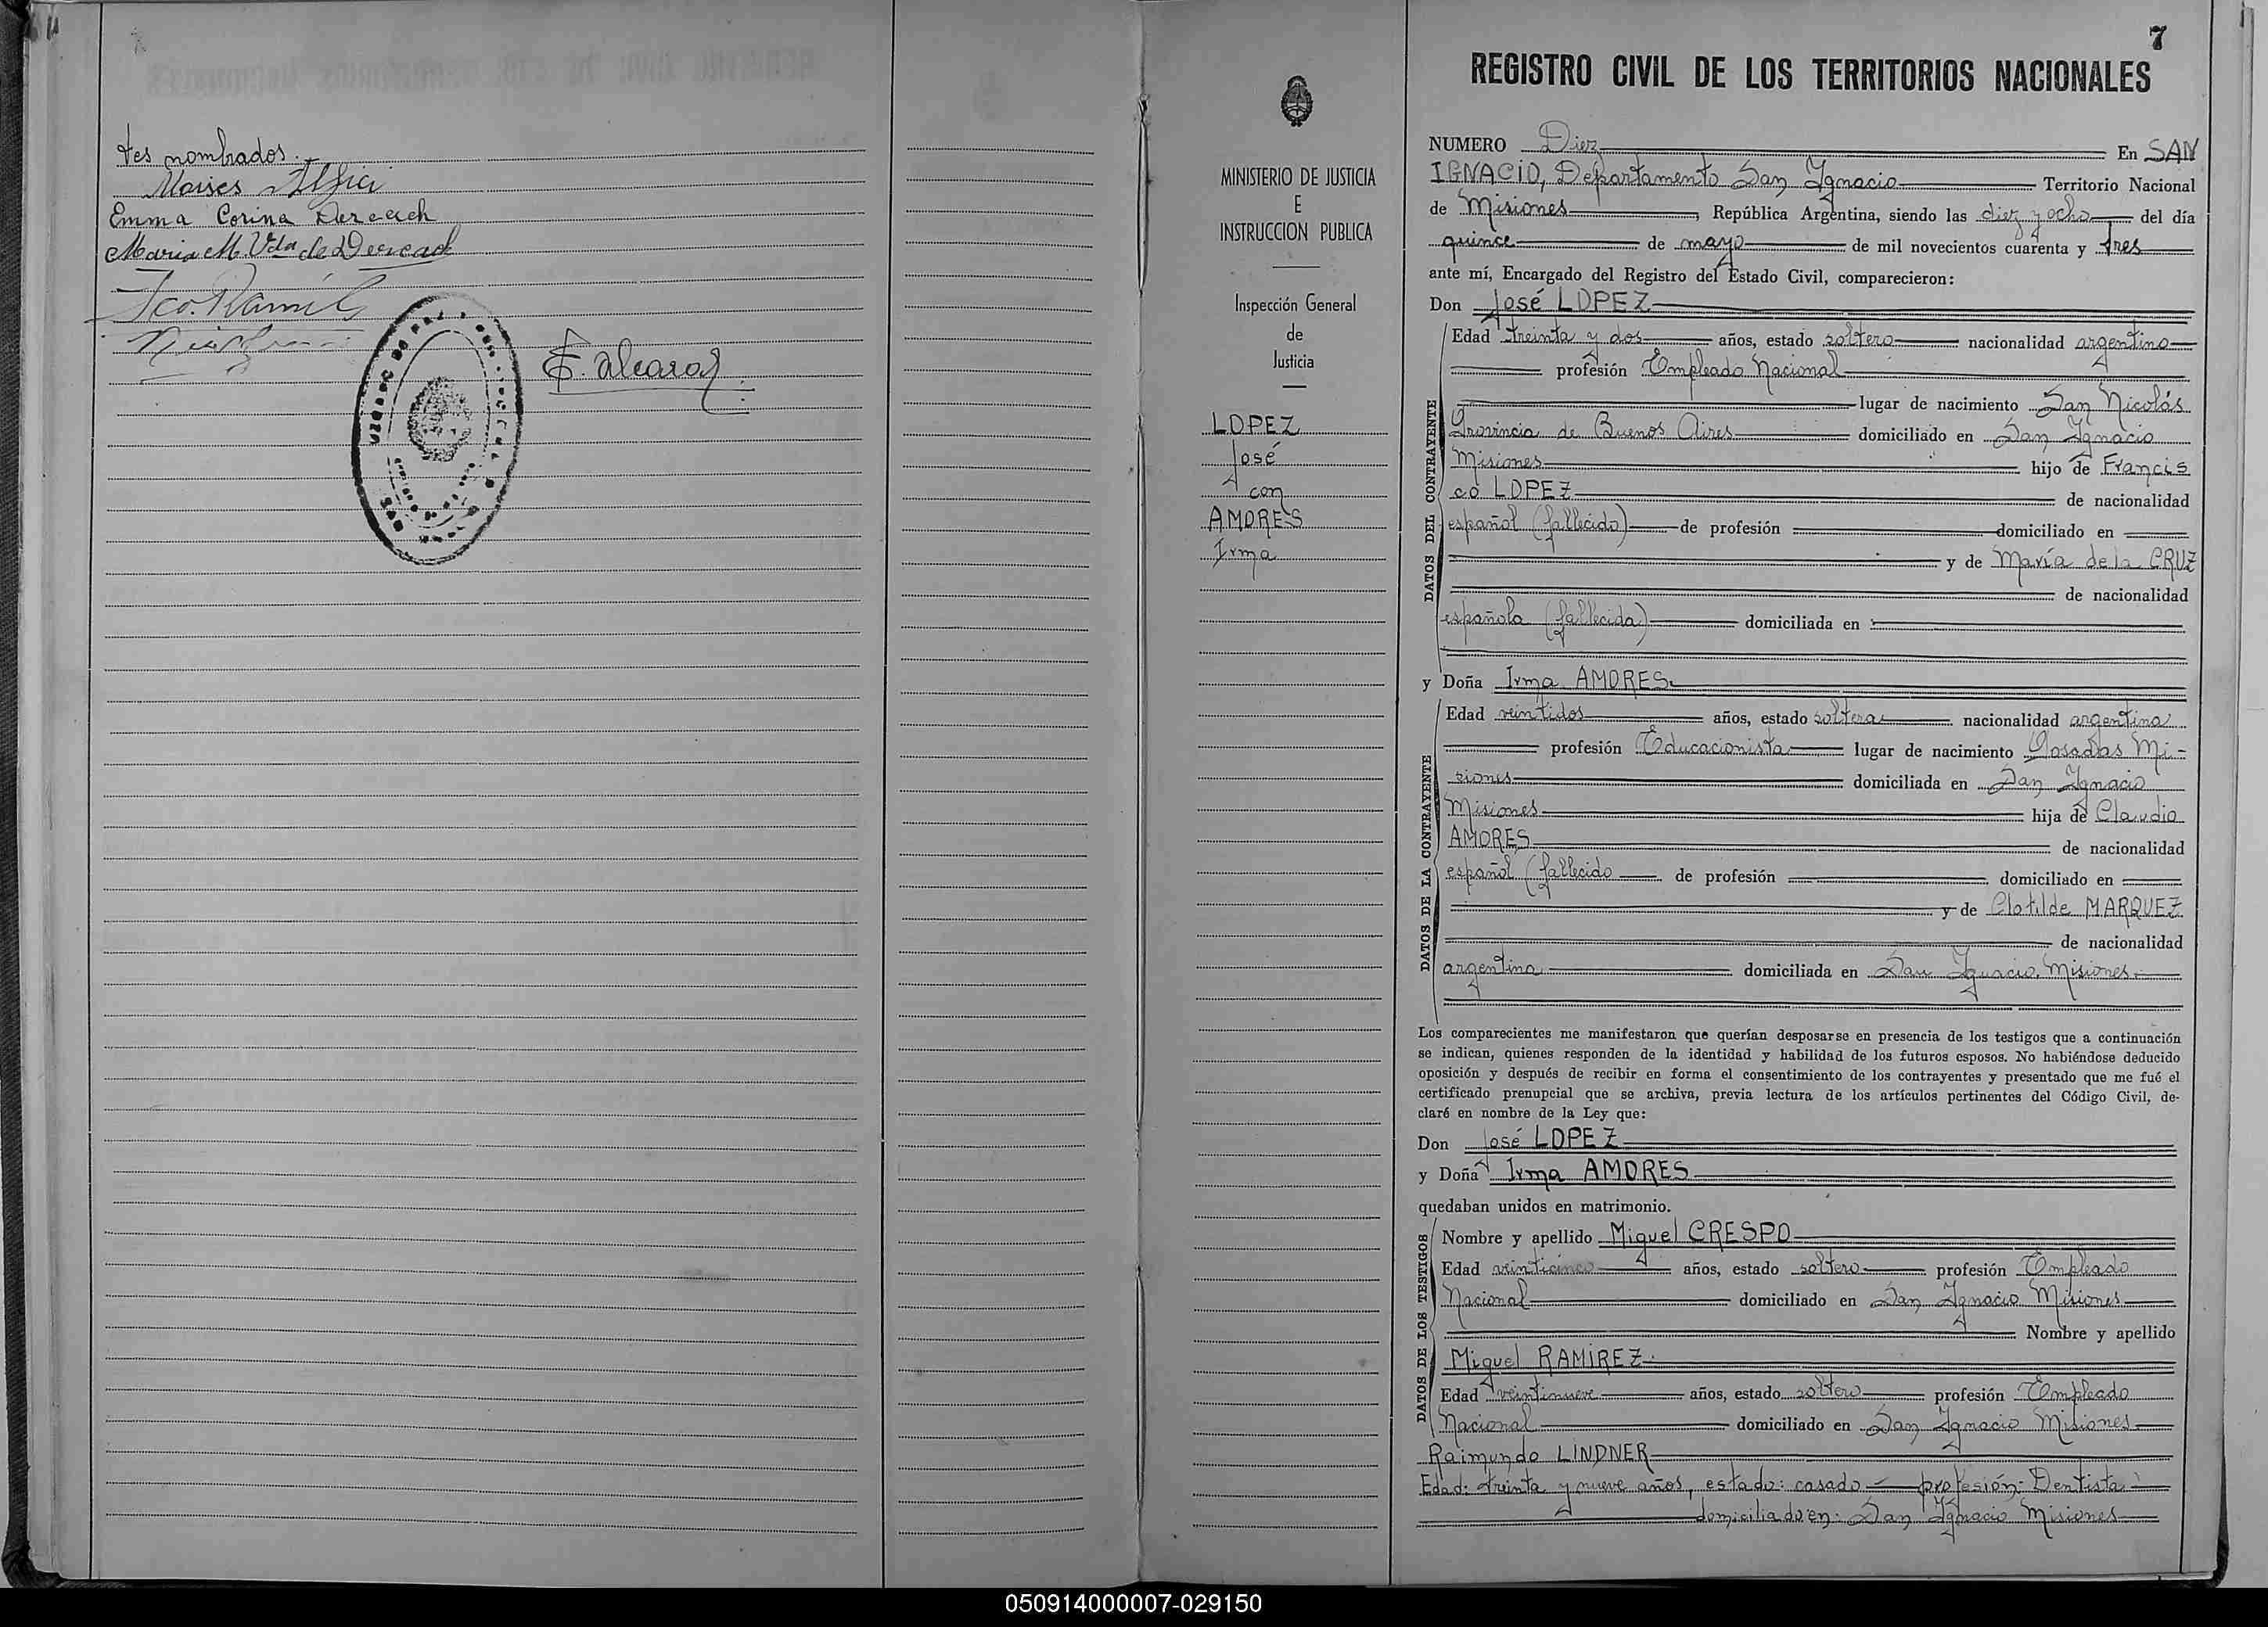 tes nombrados.
Moises
Emma Corina Dereach
Maria M. Vda de Dereach
Fco. Ramil
E. Alcaraz
7
REGISTRO CIVIL DE LOS TERRITORIOS NACIONALES
MINISTERIO DE JUSTICIA
E
INSTRUCCION PUBLICA
Inspección General
de
Justicia
LOPEZ
José
con
AMORES
Irma
NUMERO Diez En SAN
IGNACIO, Departamento San Ignacio Territorio Nacional
de Misiones, República Argentina, siendo las diez y ocho del día
quince de mayo de mil novecientos cuarenta y tres
ante mí, Encargado del Registro del Estado Civil, comparecieron:
Don José LOPEZ
DATOS DEL CONTRAYENTE
Edad treinta y dos años, estado soltero nacionalidad argentino
profesión Empleado Nacional
lugar de nacimiento San Nicolás
Provincia de Buenos Aires domiciliado en San Ignacio
Misiones hijo de Francis
co LOPEZ de nacionalidad
español (fallecido) de profesión domiciliado en
y de María de la CRUZ
de nacionalidad
española (fallecida) domiciliada en
y Doña Irma AMORES
DATOS DE LA CONTRAYENTE
Edad veintidos años, estado soltera nacionalidad argentina
profesión Educacionista lugar de nacimiento Posadas Mi-
siones domiciliada en San Ignacio
Misiones hija de Claudio
AMORES de nacionalidad
español (fallecido de profesión domiciliado en
y de Clotilde MARQUEZ
de nacionalidad
argentina domiciliada en San Ignacio. Misiones
Los comparecientes me manifestaron que querían desposarse en presencia de los testigos que a continuación
se indican, quienes responden de la identidad y habilidad de los futuros esposos. No habiéndose deducido
oposición y después de recibir en forma el consentimiento de los contrayentes y presentado que me fué el
certificado prenupcial que se archiva, previa lectura de los artículos pertinentes del Código Civil, de-
claré en nombre de la Ley que:
Don José LOPEZ
y Doña Irma AMORES
quedaban unidos en matrimonio.
DATOS DE LOS TESTIGOS
Nombre y apellido Miguel CRESPO
Edad veinticinco años, estado soltero profesión Empleado
Nacional domiciliado en San Ignacio Misiones
Nombre y apellido
Miguel RAMIREZ
Edad veintinueve años, estado soltero profesión Empleado
Nacional domiciliado en San Ignacio Misiones
Raimundo LINDNER
Edad: treinta y nueve años, estado: casado profesión: Dentista
domiciliado en: San Ignacio Misiones
050914000007-029150